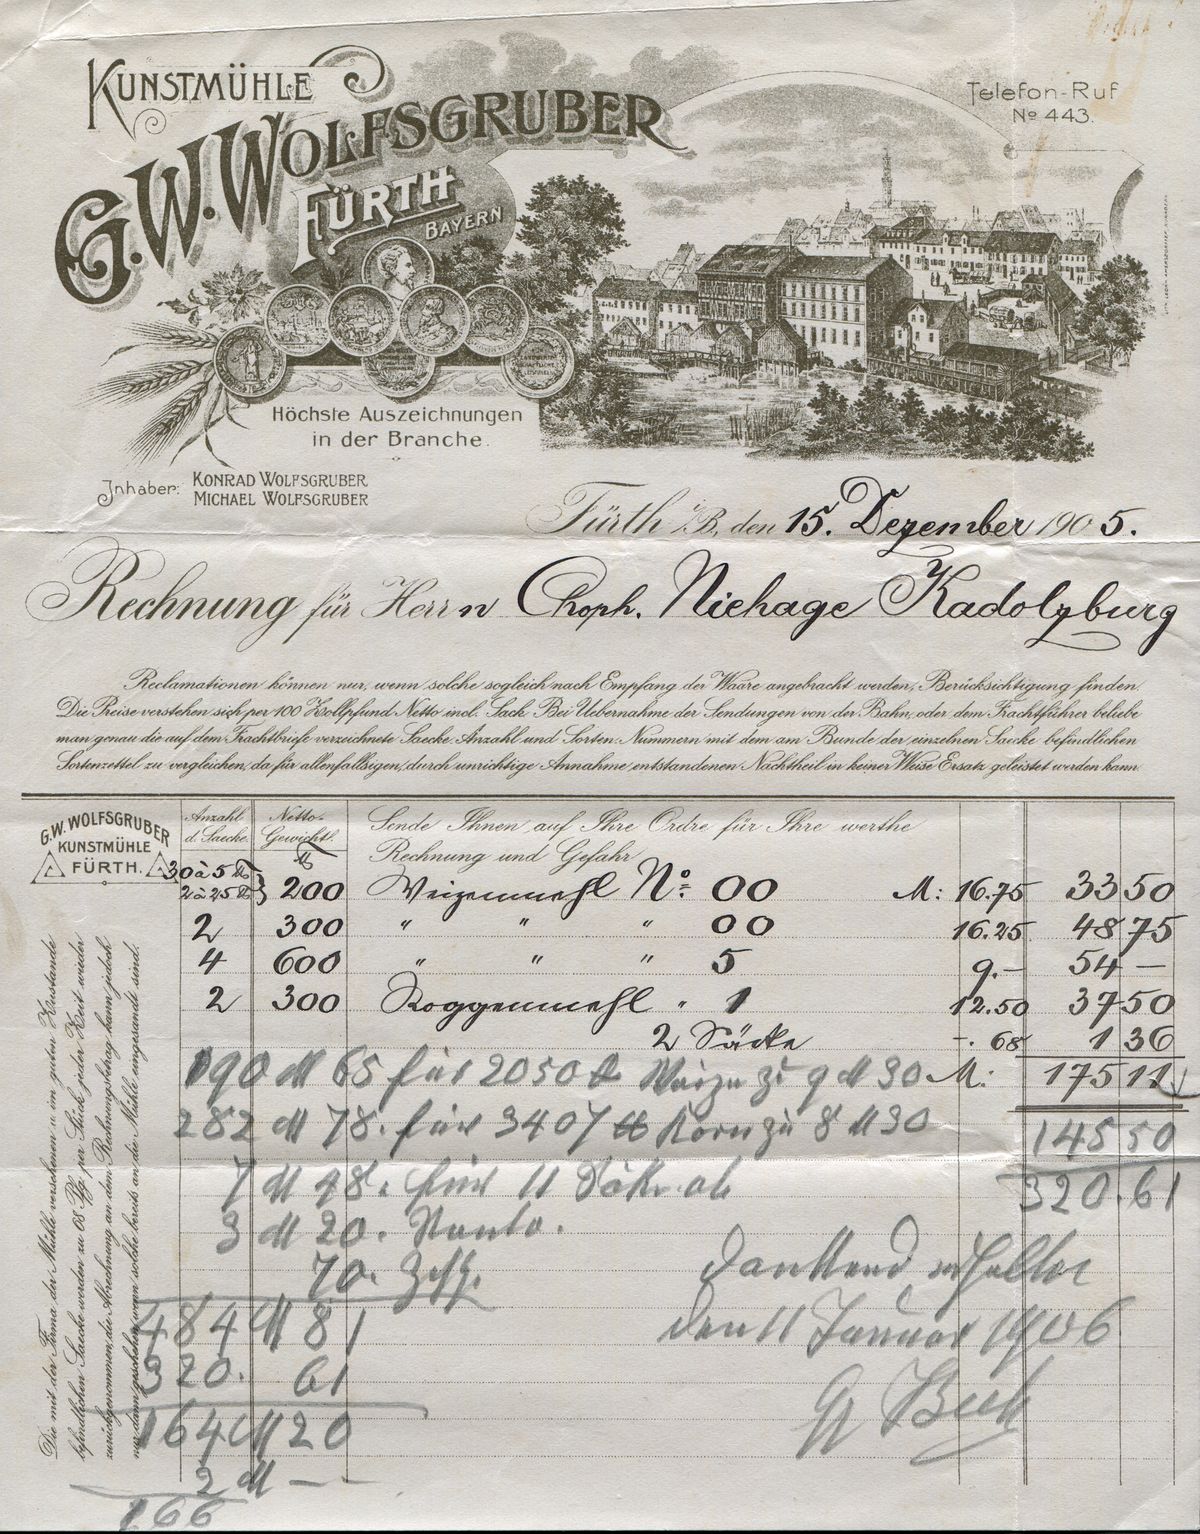 KUNSTMÜHLE
G.W. WOLFSGRUBER
FÜRTH
BAYERN
Telefon-Ruf
No 443.
Höchste Auszeichnungen
in der Branche.
Inhaber: KONRAD WOLFSGRUBER
MICHAEL WOLFSGRUBER
Fürth i/B, den 15. Dezember 1905.
Rechnung für Herrn Choph. Niehage Kadolzburg
Reclamationen können nur, wenn solche sogleich nach Empfang der Waare angebracht werden, Berücksichtigung finden.
Die Preise verstehen sich per 100 Zollpfund Netto incl. Sack. Bei Uebernahme der Sendungen von der Bahn, oder dem Frachtführer beliebe
man genau die auf dem Frachtbriefe verzeichnete Saecke-Anzahl und Sorten-Nummern mit dem am Bunde der einzelnen Saecke befindlichen
Sortenzettel zu vergleichen, da für allenfallsigen, durch unrichtige Annahme entstandenen Nachtheil in keiner Weise Ersatz geleistet werden kann.
G.W. WOLFSGRUBER
KUNSTMÜHLE
FÜRTH.
Anzahl d. Saecke. Netto-Gewicht. Sende Ihnen auf Ihre Ordre für Ihre werthe
Rechnung und Gefahr
30 à 5 ℔
2 à 25 ℔ } 200 Weizenmehl No. 00 M: 16.75 33 50
2 300 " " " 00 16.25 48 75
4 600 " " " 5 9.- 54 —
2 300 Roggenmehl " 1 12.50 37 50
2 Säcke -. 68 1 36
M: 175 11
190 M 65 für 2050 ℔ Waizn zu 9 M 30
282 M 78. für 3407 ℔ Korn zu 8 M 30
145 50
7 M 48. für 11 Säke ab
320.61
3 M 20.
70.
dankend erhalten
484 M 81
den 11 Januar 1906
320. 61
G Beck
164 M 20
2 M — —
166
Die mit der Firma der Mühle versehenen u. im guten Zustande
befindlichen Saecke werden zu 68 Pfg. per Stück jeder Zeit wieder
zurückgenommen, die Abrechnung an dem Rechnungsbetrag kann jedoch
nur dann geschehen, wenn solche bereits an die Mühle eingesandt sind.